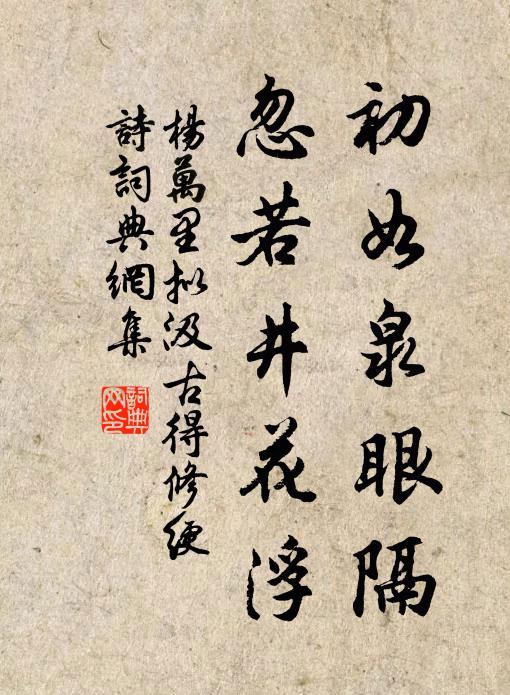 初如泉眼隔
忽若井花浮
楊萬里拟汲古得修绠
詩詞典網集
詞典
网印